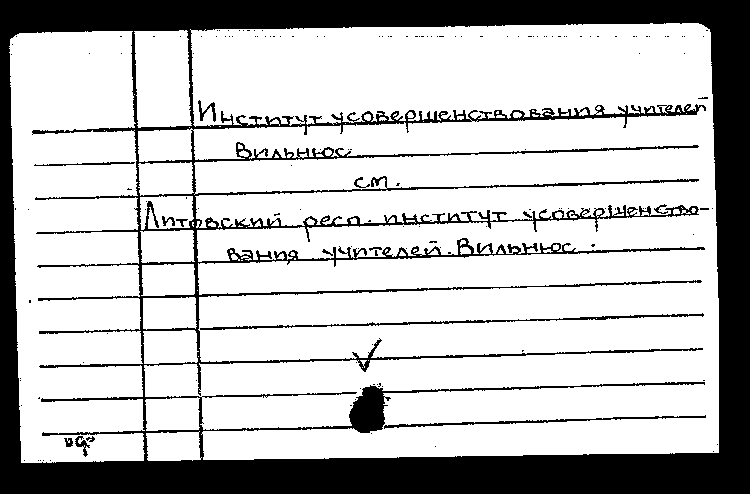 Институт усовершенствования учителей
Вильнюс
см.
Литовский респ. институт усовершенство-
вания учителей. Вильнюс.